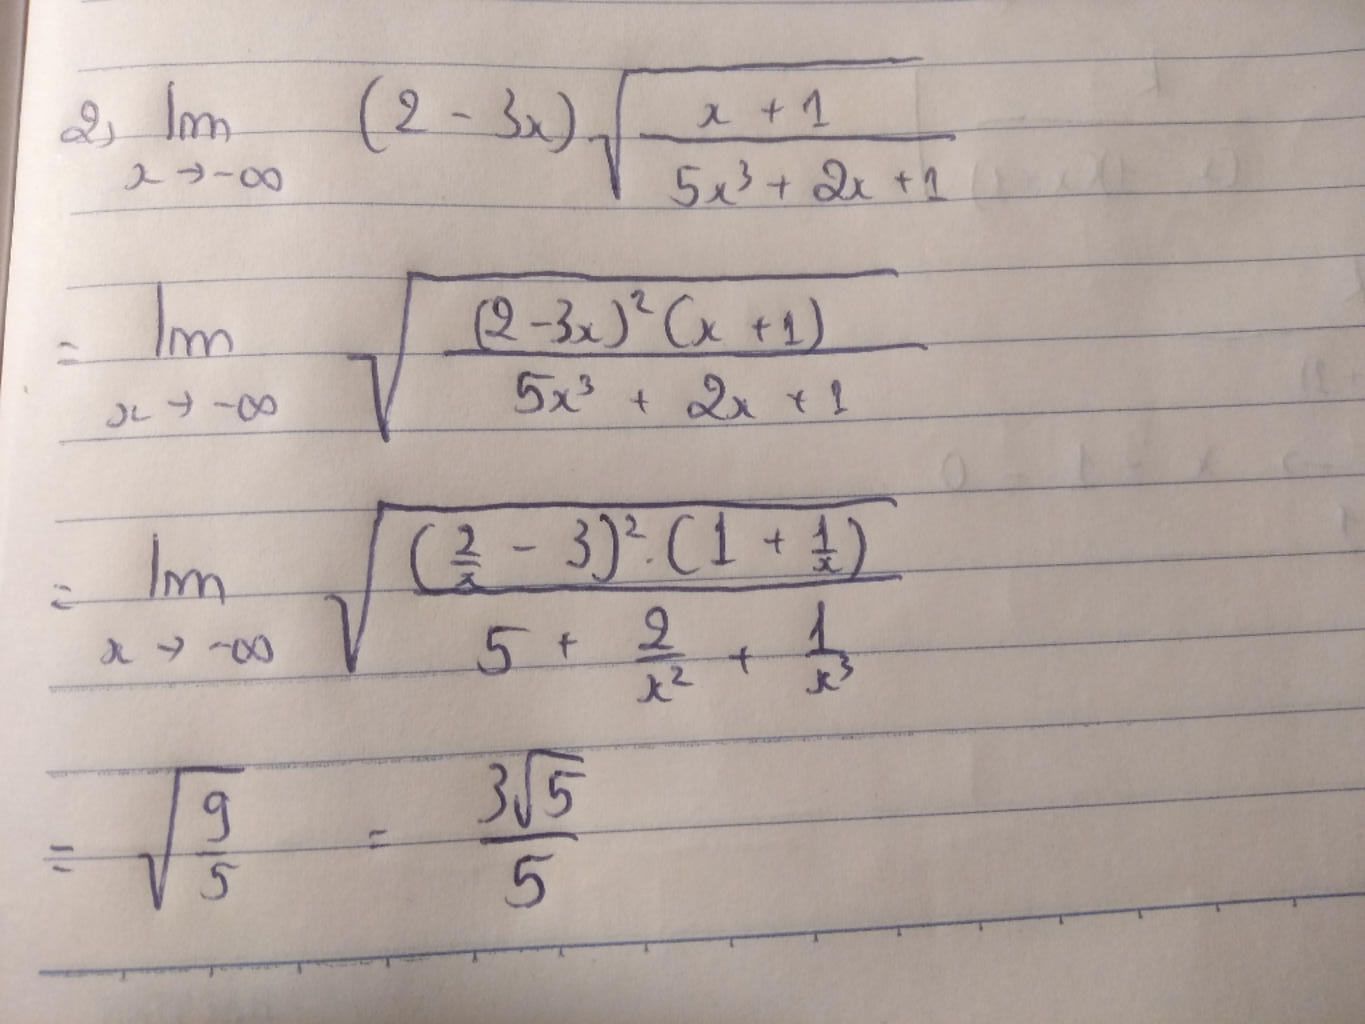 2, lim x → -∞ (2 - 3x) . √((x + 1)/(5x³ + 2x + 1))
= lim x → -∞ √((2 - 3x)² (x + 1)/(5x³ + 2x + 1))
= lim x → -∞ √((2/x - 3)² . (1 + 1/x)/(5 + 2/x² + 1/x³))
= √(9/5) = 3√5/5